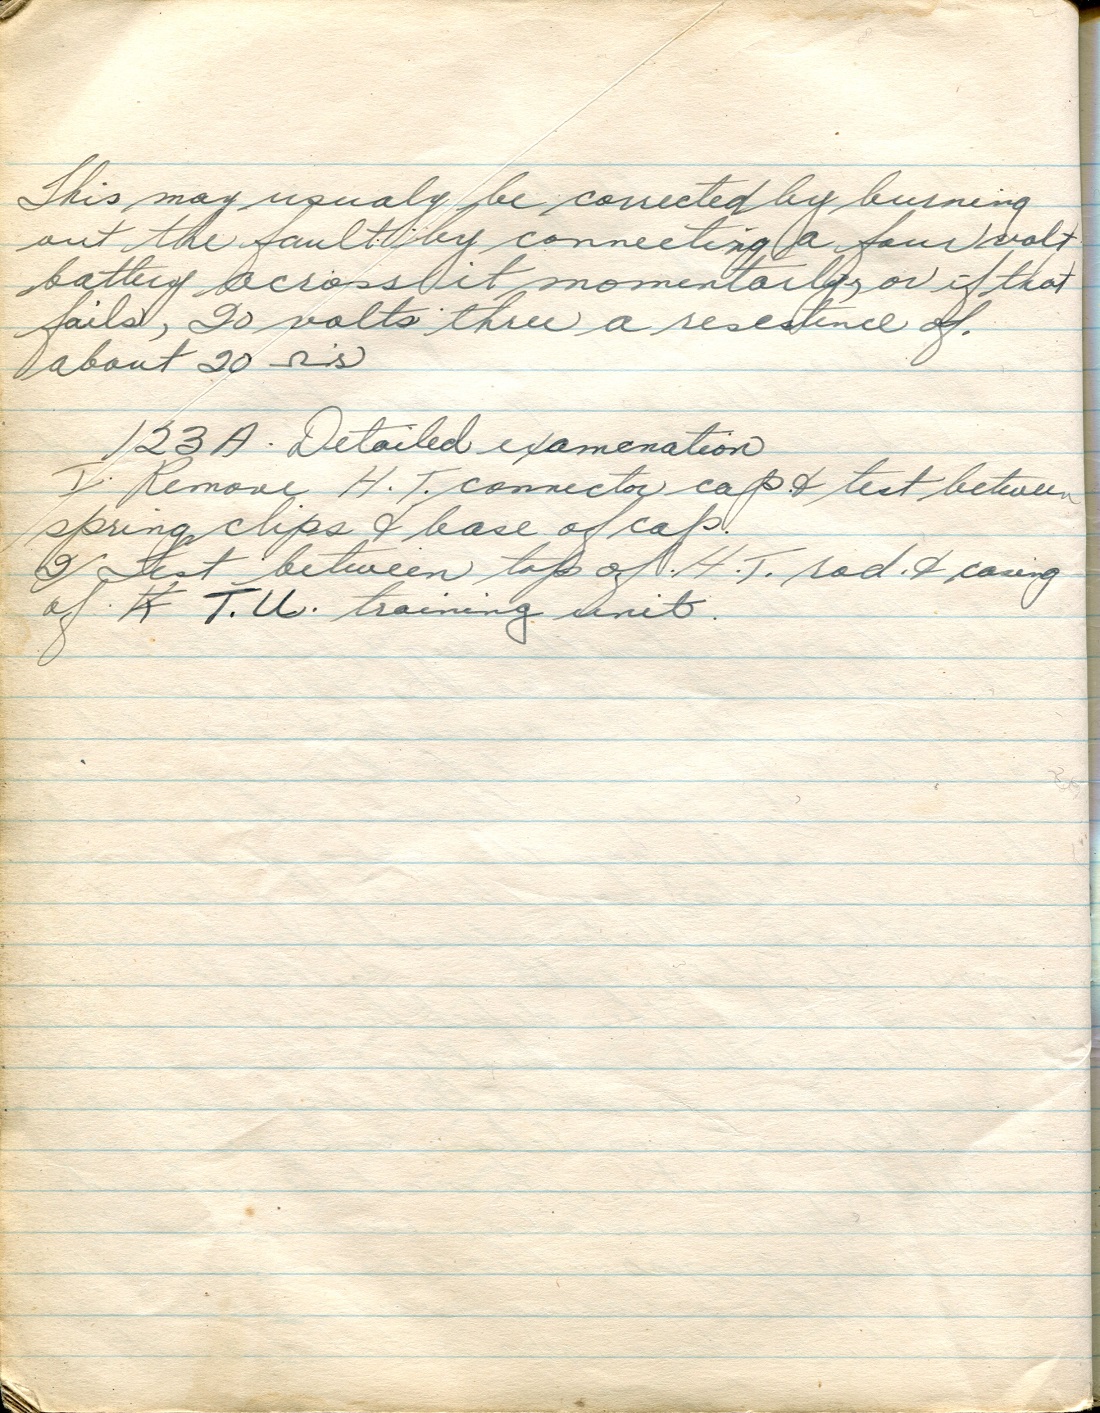 This may usualy be corrected by burning
out the fault by connecting a four volt
battery across it momentarily, or if that
fails, 20 volts three a resestence of
about 20 Ω's
123 A. Detailed examenation
1. Remove H.T. connector cap & test between
spring clips & base of cap.
2/ Test between top of H.T. rod & casing
of T.U. training unit.